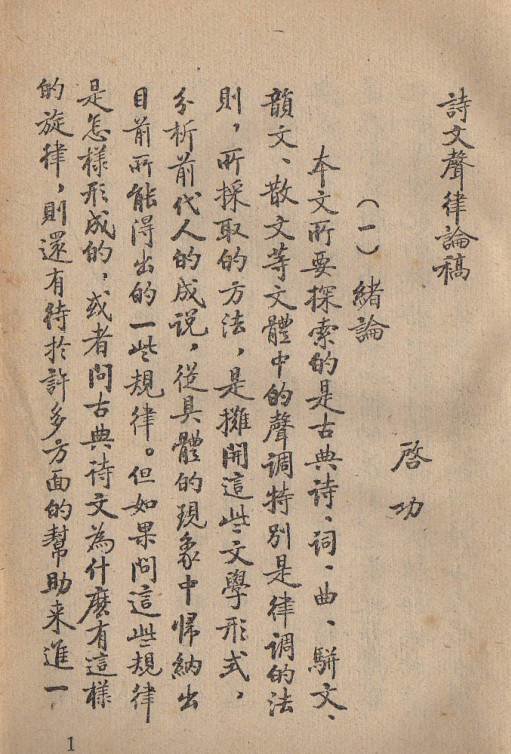 詩文聲律論稿
啓功
（一）緒論
本文所要探索的是古典詩、詞、曲、駢文、
韻文、散文等文體中的聲調特别是律調的法
則，所採取的方法，是攤開這些文學形式，
分析前代人的成说，從具體的現象中帰納出
目前所能得出的一些規律。但如果问這些規律
是怎樣形成的，或者问古典诗文為什麽有這樣
的旋律，則還有待於許多方面的幫助来進一
1